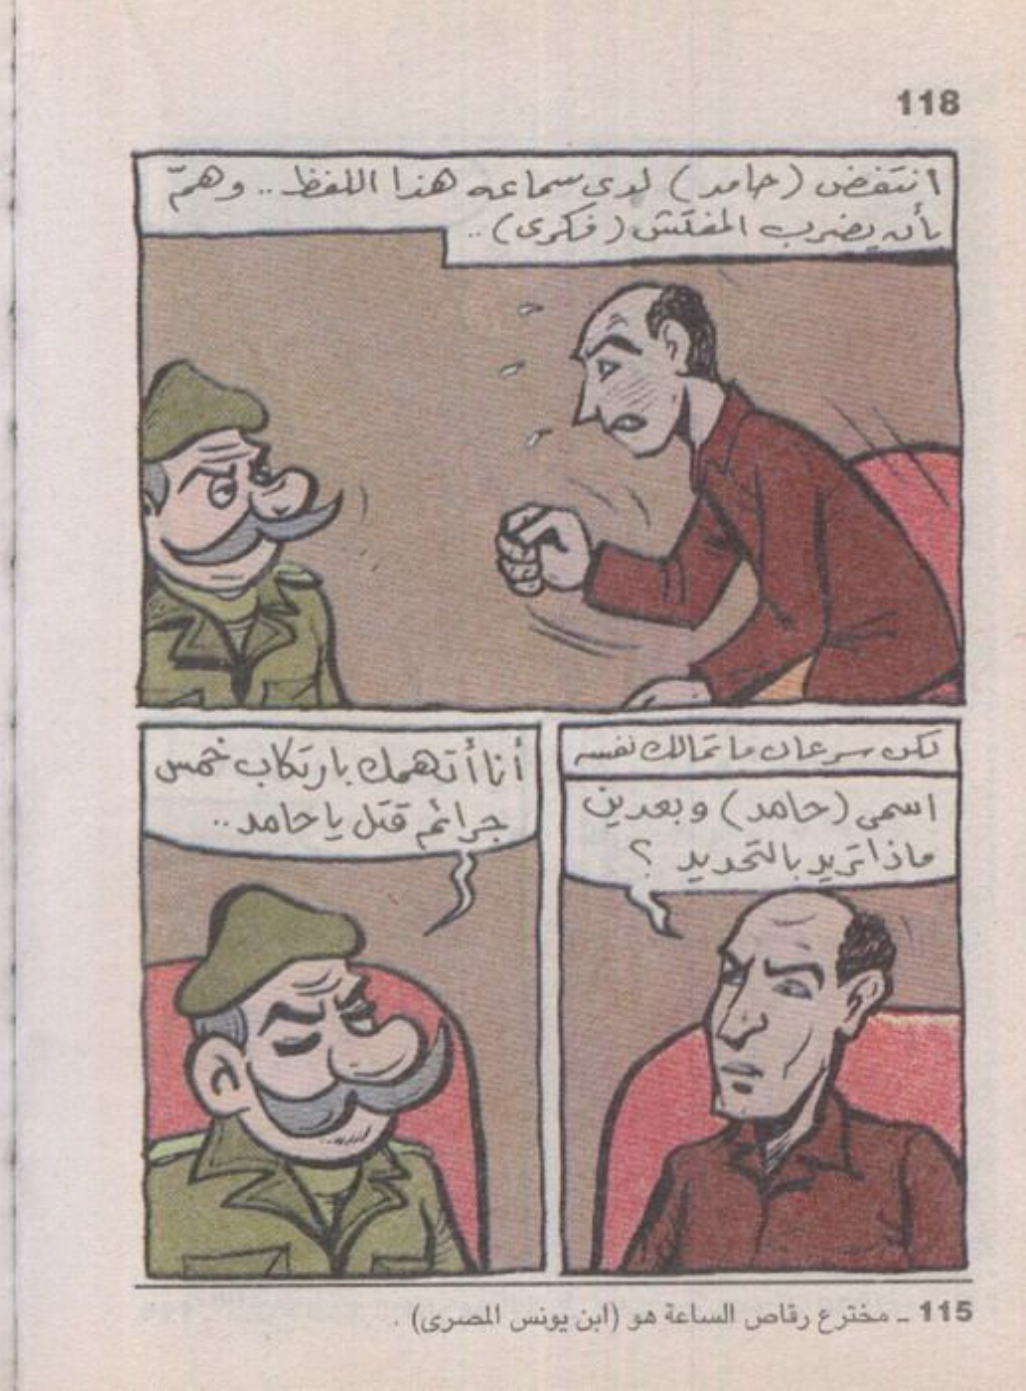 118
انتفض (حامد) لدى سماعه هذا اللفظ .. وهمّ
بأن يضرب المفتش (فكرى) ..
لكن سرعان ما تمالك نفسه
اسمى (حامد) وبعدين
ماذا تريد بالتحديد ؟
أنا أتهمك بارتكاب خمس
جرائم قتل يا حامد ..
115 ـ مخترع رقاص الساعة هو (ابن يونس المصرى) .